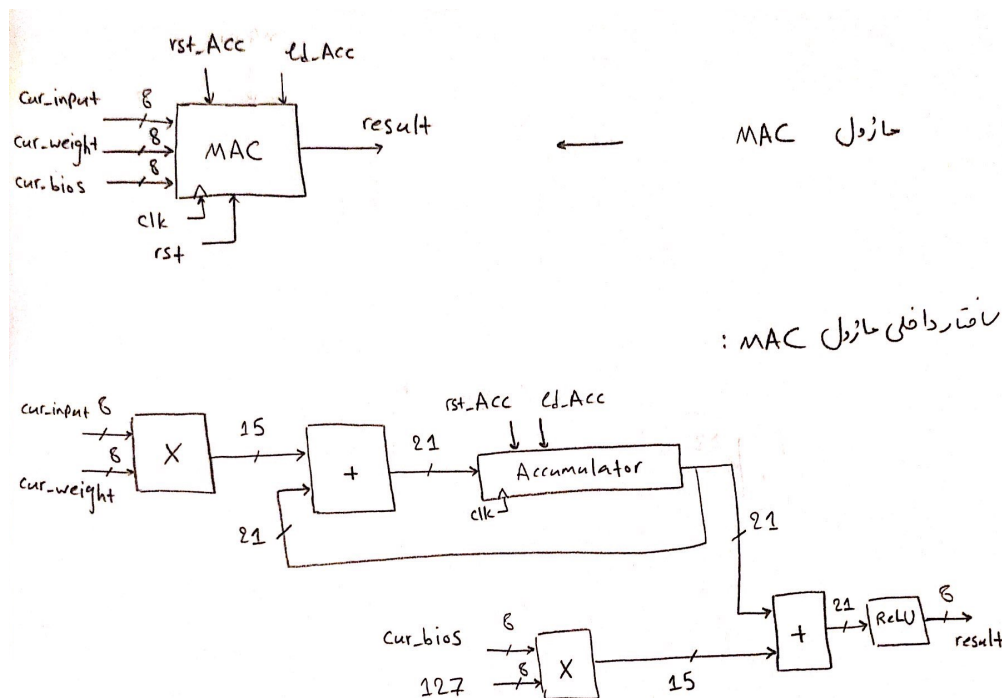 rst_Acc ld_Acc
cur_input 8
cur_weight 8
cur.bios 8
MAC
result
clk
rst
ماژول MAC
ساختار داخلی ماژول MAC :
cur_input 8
8
cur_weight
X
15
+
21
21
rst_Acc ld_Acc
Accumulator
clk
21
cur_bios 8
127 8
X
15
+
21
ReLU
8
result